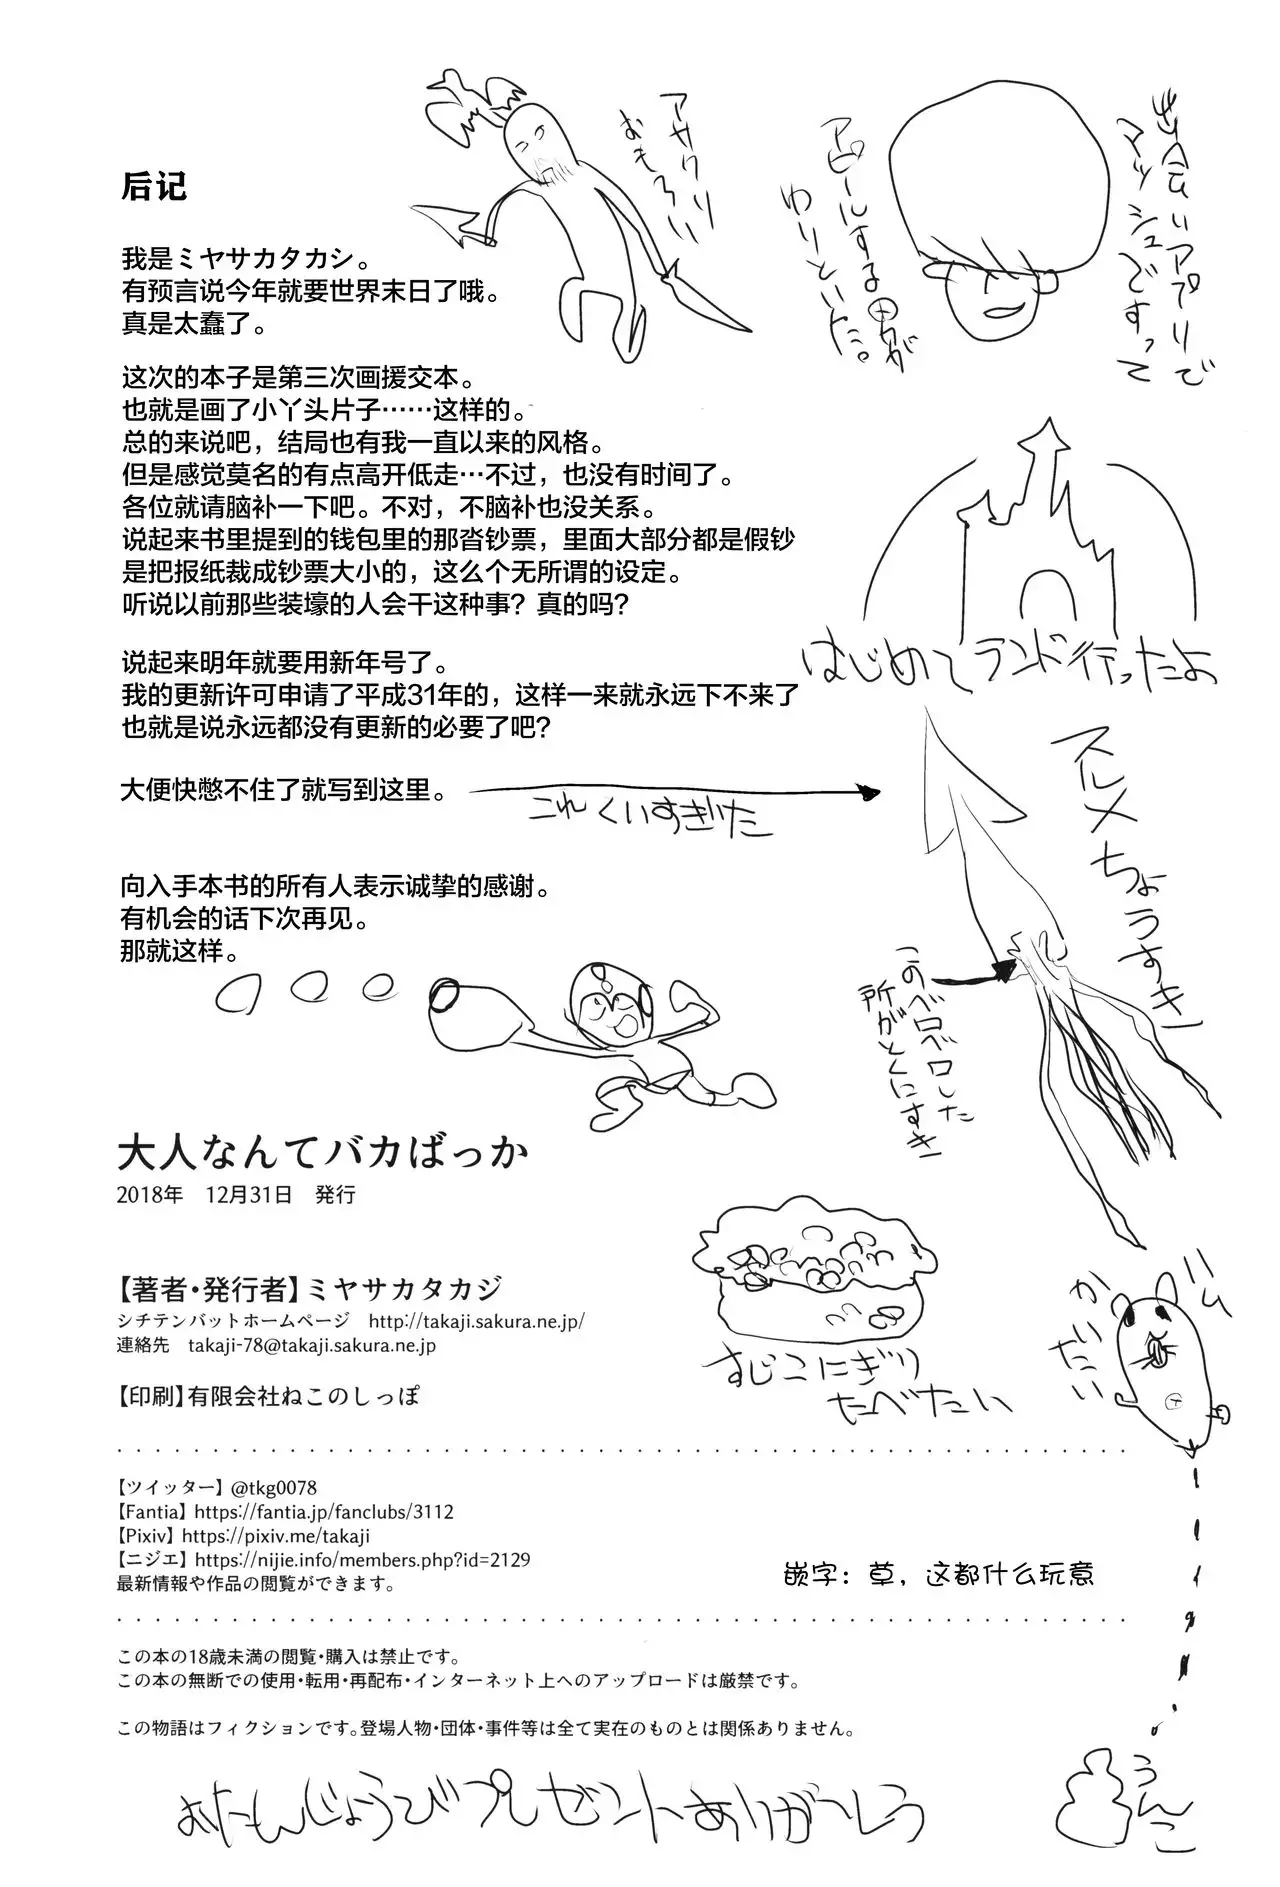 后记
我是ミヤサカタカシ。
有预言说今年就要世界末日了哦。
真是太蠢了。
这次的本子是第三次画援交本。
也就是画了小丫头片子……这样的。
总的来说吧，结局也有我一直以来的风格。
但是感觉莫名的有点高开低走…不过，也没有时间了。
各位就请脑补一下吧。不对，不脑补也没关系。
说起来书里提到的钱包里的那沓钞票，里面大部分都是假钞
是把报纸裁成钞票大小的，这么个无所谓的设定。
听说以前那些装壕的人会干这种事？真的吗？
说起来明年就要用新年号了。
我的更新许可申请了平成31年的，这样一来就永远下不来了
也就是说永远都没有更新的必要了吧？
大便快憋不住了就写到这里。
これくいすぎた
向入手本书的所有人表示诚挚的感谢。
有机会的话下次再见。
那就这样。
出会いアプリで
マッシュですって
アピールする男が
わりといた。
アサクリ
おもろい
はじめてランド行ったよ
スルメちょうすき
このベロベロした
所がとくにすき
大人なんてバカばっか
2018年　12月31日　発行
【著者・発行者】ミヤサカタカジ
シチテンバットホームページ　http://takaji.sakura.ne.jp/
連絡先　takaji-78@takaji.sakura.ne.jp
【印刷】有限会社ねこのしっぽ
すじこにぎり
たべたい
ハム
かいたい
【ツイッター】@tkg0078
【Fantia】https://fantia.jp/fanclubs/3112
【Pixiv】https://pixiv.me/takaji
【ニジエ】https://nijie.info/members.php?id=2129
最新情報や作品の閲覧ができます。
嵌字：草，这都什么玩意
この本の18歳未満の閲覧・購入は禁止です。
この本の無断での使用・転用・再配布・インターネット上へのアップロードは厳禁です。
この物語はフィクションです。登場人物・団体・事件等は全て実在のものとは関係ありません。
うんこ
おたんじょうびプレゼントありがとう